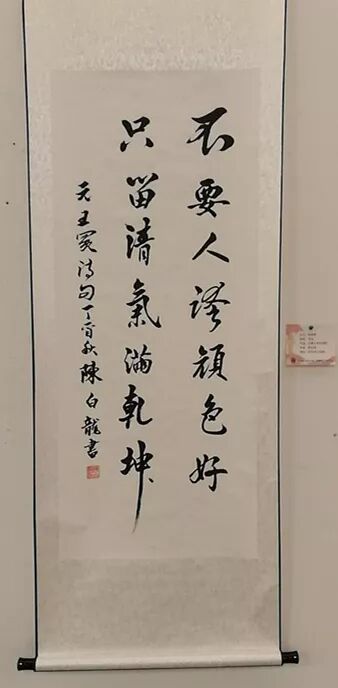 不要人誇顔色好
只留清氣滿乾坤
元王冕詩句丁酉秋陳白龍書